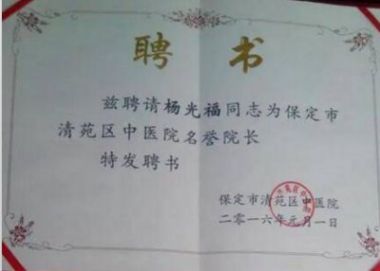 聘 书
兹聘请杨光福同志为保定市
清苑区中医院名誉院长
特发聘书
保定市清苑区中医院
二〇一六年元月一日